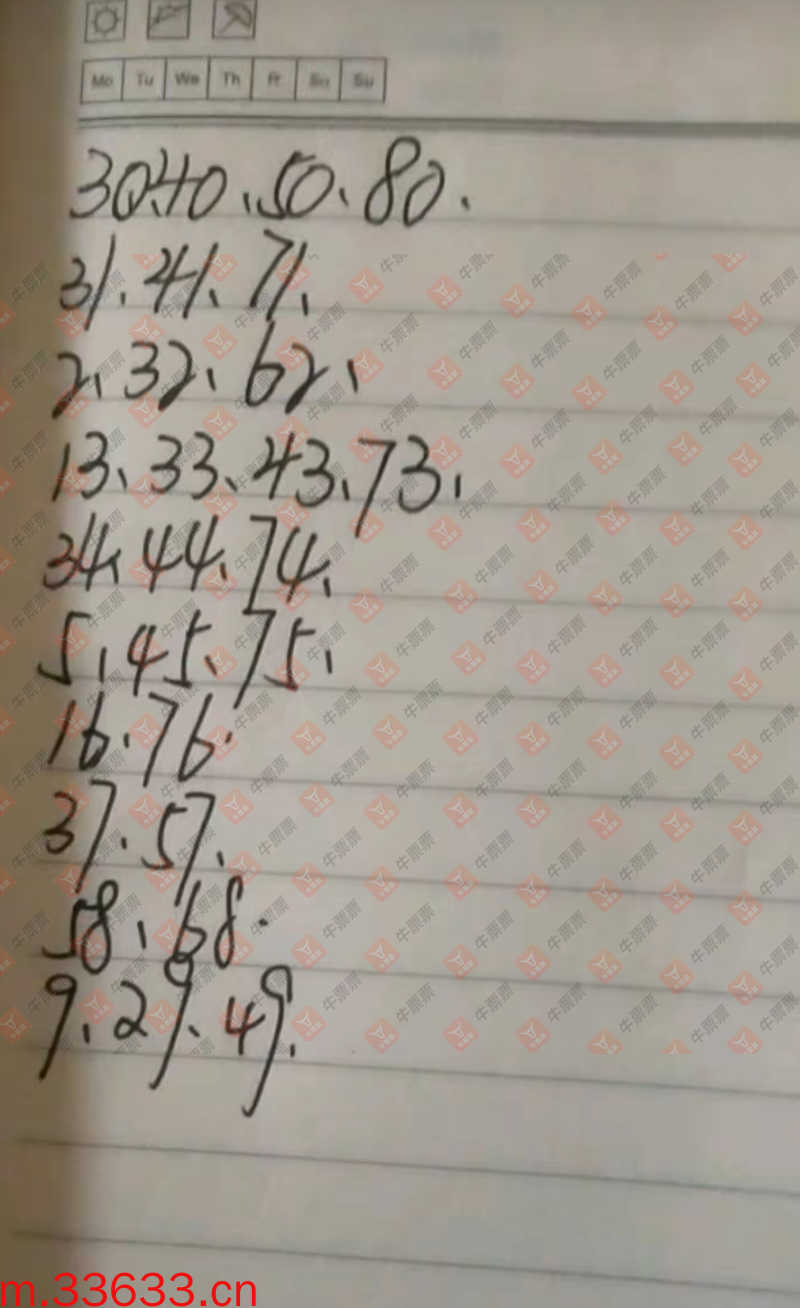 Mo Tu We Th Fr Sa Su
30、40、50、80、
31、41、71、
2、32、62、
13、33、43、73、
34、44、74、
5、45、75、
16、76、
37、57、
58、68、
9、29、49、
牛票票
m.33633.cn